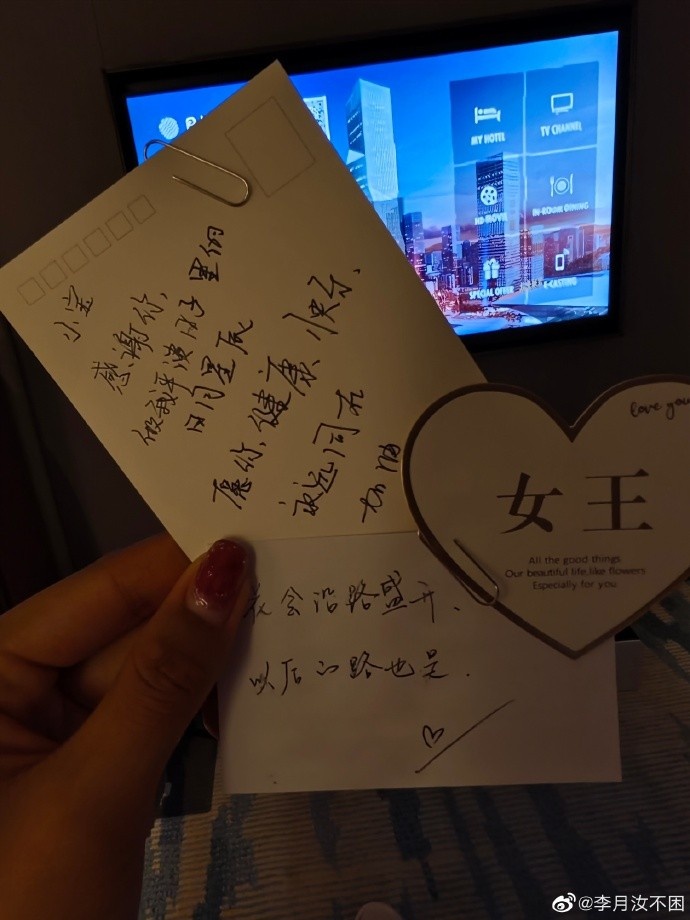 MY HOTEL
TV CHANNEL
HD MOVIE
IN-ROOM DINING
SPECIAL OFFER
E-CASTING
小宝
感谢你,
做我平淡日子里的
日月星辰
愿你,健康、快乐、
永远同在
love you
女王
All the good things
Our beautiful life,like flowers
Especially for you
花会沿路盛开、
以后的路也是.
@李月汝不困